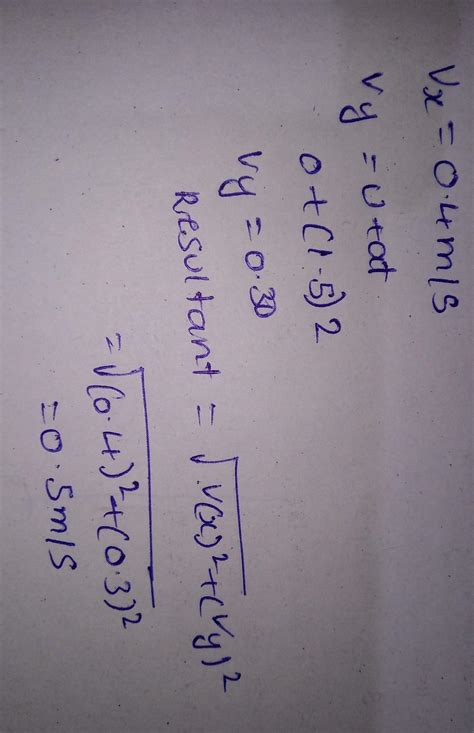 Vx = 0.4m/s
Vy = u+at
0+(1.5)2
Vy = 0.30
Resultant = √V(x)²+(Vy)²
= √(0.4)²+(0.3)²
= 0.5m/s